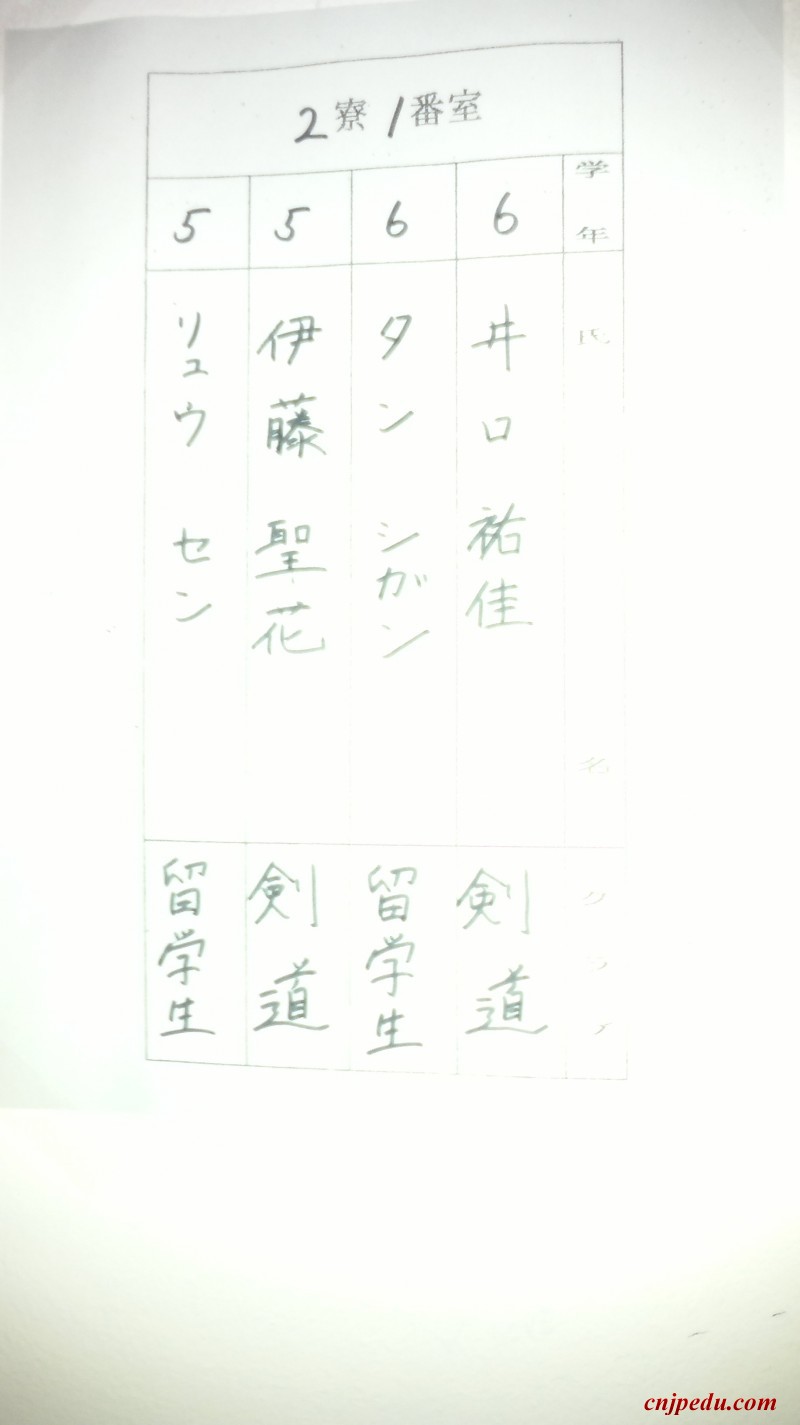 2寮1番室
学年
氏名
クラブ
6
井口 祐佳
剣道
6
タン シガン
留学生
5
伊藤 聖花
剣道
5
リュウ セン
留学生
cnjpedu.com